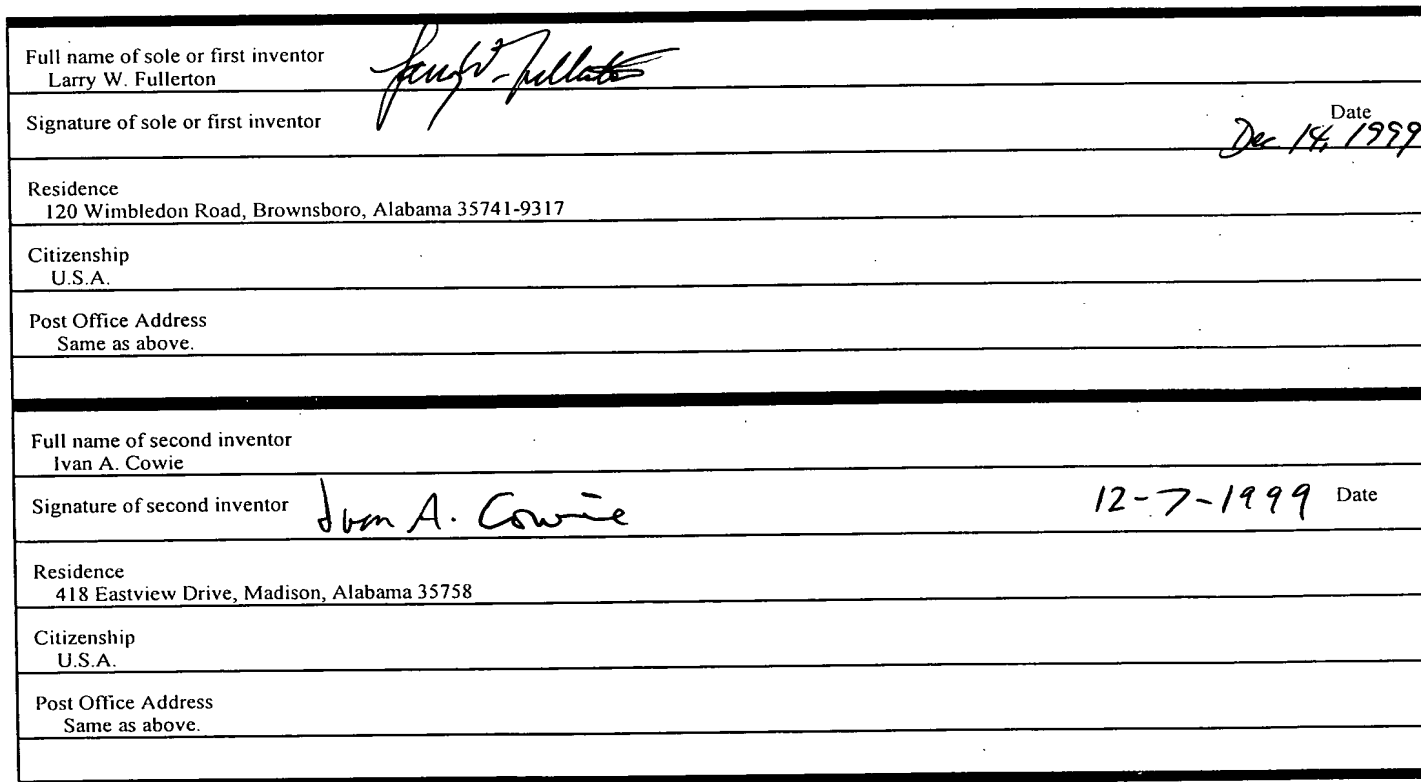 Full name of sole or first inventor
Larry W. Fullerton
Signature of sole or first inventor Larry W. Fullerton
Date
Dec 14, 1999
Residence
120 Wimbledon Road, Brownsboro, Alabama 35741-9317
Citizenship
U.S.A.
Post Office Address
Same as above.
Full name of second inventor
Ivan A. Cowie
Signature of second inventor Ivan A. Cowie 12-7-1999 Date
Residence
418 Eastview Drive, Madison, Alabama 35758
Citizenship
U.S.A.
Post Office Address
Same as above.